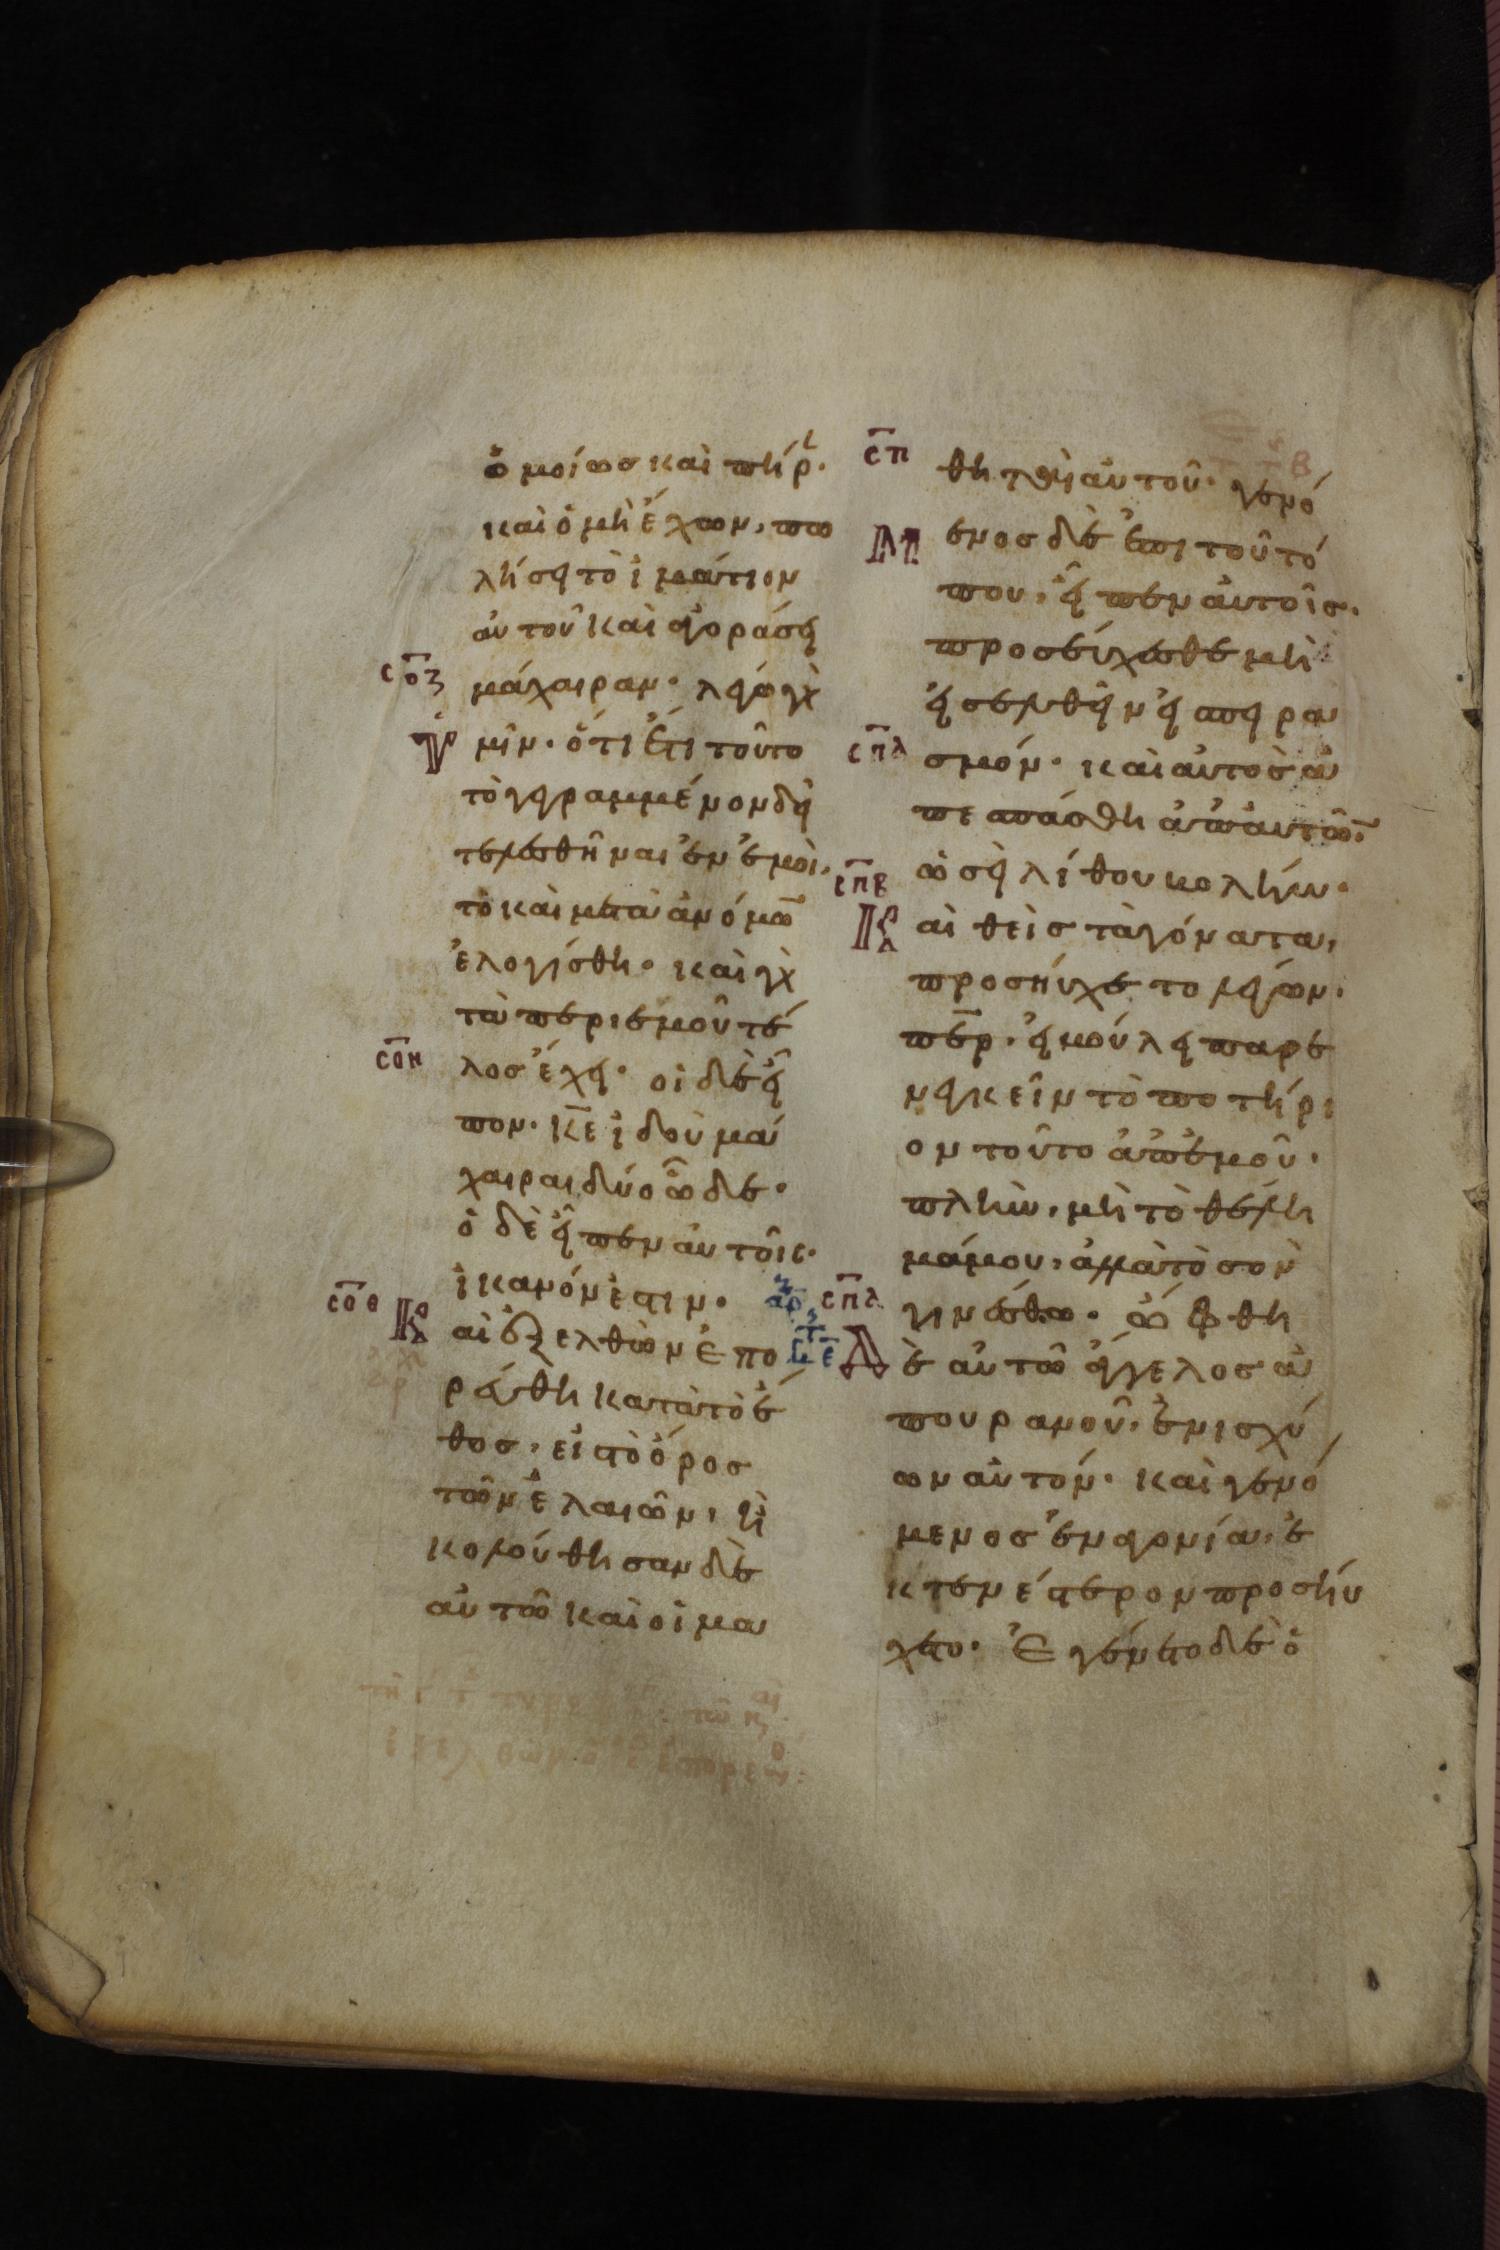 ὁμοίωσ καὶ πήρ.
καὶ ὁ μὴ ἔχων, πω
λήσει τὸ ἱμάτιον
αὐτοῦ καὶ ἀγοράσει
σ̅ο̅ζ μάχαιραν· λέγω γὰρ
ὑμῖν· ὅτι ἔτι τοῦτο
τὸ γεγραμμένον δεῖ
τελεσθῆναι ἐν ἐμοὶ,
τὸ καὶ μετὰ ἀνόμω̅
ἐλογίσθη· καὶ γὰρ
τὰ περι ἐμοῦ τέ
σ̅ο̅η λοσ ἔχει· οἱ δὲ εἶ
πον· κ̅ε̅ ἰδοὺ μά
χαιραι δύο ὧδε·
ὁ δὲ εἶπεν αὐτοῖσ·
ἱκανόν ἐστιν·
σ̅ο̅θ Καὶ ἐξελθὼν ἐπο
ρεύθη κατὰ τὸ ἔ
θοσ, εἰσ τὸ ὄροσ
τῶν ἐλαιῶν, ἠ
κολούθησαν δὲ
αὐτῶ καὶ οἱ μα
σ̅π̅ θηταὶ αὐτοῦ· γενό
μενοσ δὲ ἐπι τοῦ τό
που, εἶπεν αὐτοῖσ.
προσεύχεσθε μὴ
εἰσελθεῖν εἰσ πειρα
σ̅π̅α σμόν· καὶ αὐτὸσ ἀ
πεσπάσθη ἀπ αὐτῶ̅·
σ̅π̅β ὡσεὶ λίθου βολήν·
Καὶ θεὶσ τὰ γόνατα,
προσηύχετο λέγων.
π̅ε̅ρ, εἰ βούλει παρε
νεγκεῖν τὸ ποτήρι
ον τοῦτο ἀπ ἐμοῦ·
πλὴν, μὴ τὸ θέλη
μά μου, ἀλλὰ τὸ σὸν
γινέσθω· ὤφθη
δὲ αὐτῶ ἄγγελοσ ἀ
π οὐρανοῦ, ἐνισχύ
ων αὐτόν· καὶ γενό
μενοσ ἐν ἀγωνία, ἐ
κτενέστερον προσηύ
χετο· Ἐγένετο δὲ ὁ